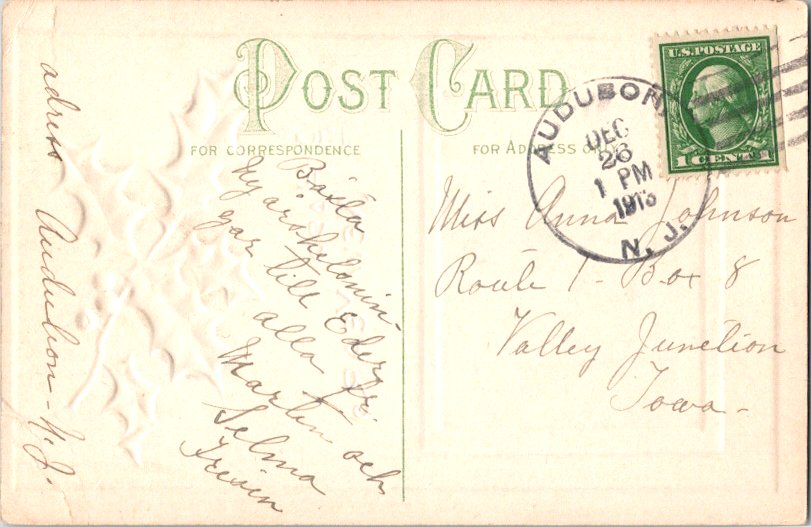 POST CARD
FOR CORRESPONDENCE
FOR ADDRESS ONLY
U.S. POSTAGE
1 CENT 1
AUDUBON
DEC
26
1 PM
1913
N. J.
Miss Anna Johnson
Route 1 - Box 8
Valley Junction
Iowa -
Bästa
Nyårshelsnin-
gar till Eder
alla fr.
Martin och
Selma
adress Audubon - N.J.